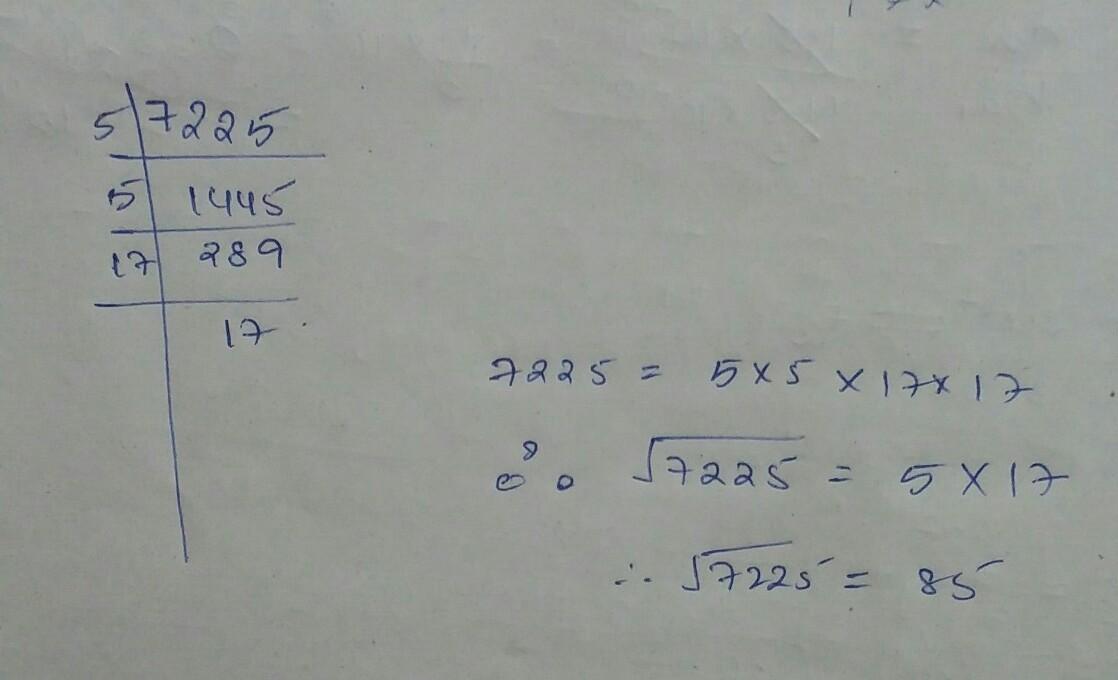 5 7225
5 1445
17 289
17
7225 = 5 × 5 × 17 × 17
∴ √7225 = 5 × 17
∴ √7225 = 85